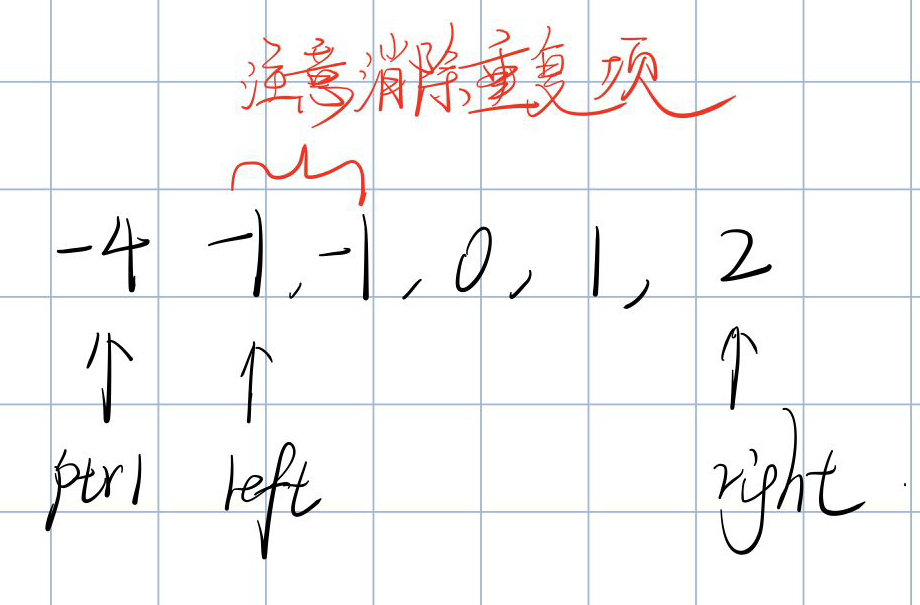 注意消除重复项
-4 -1,-1,0,1,2
ptr1 left right